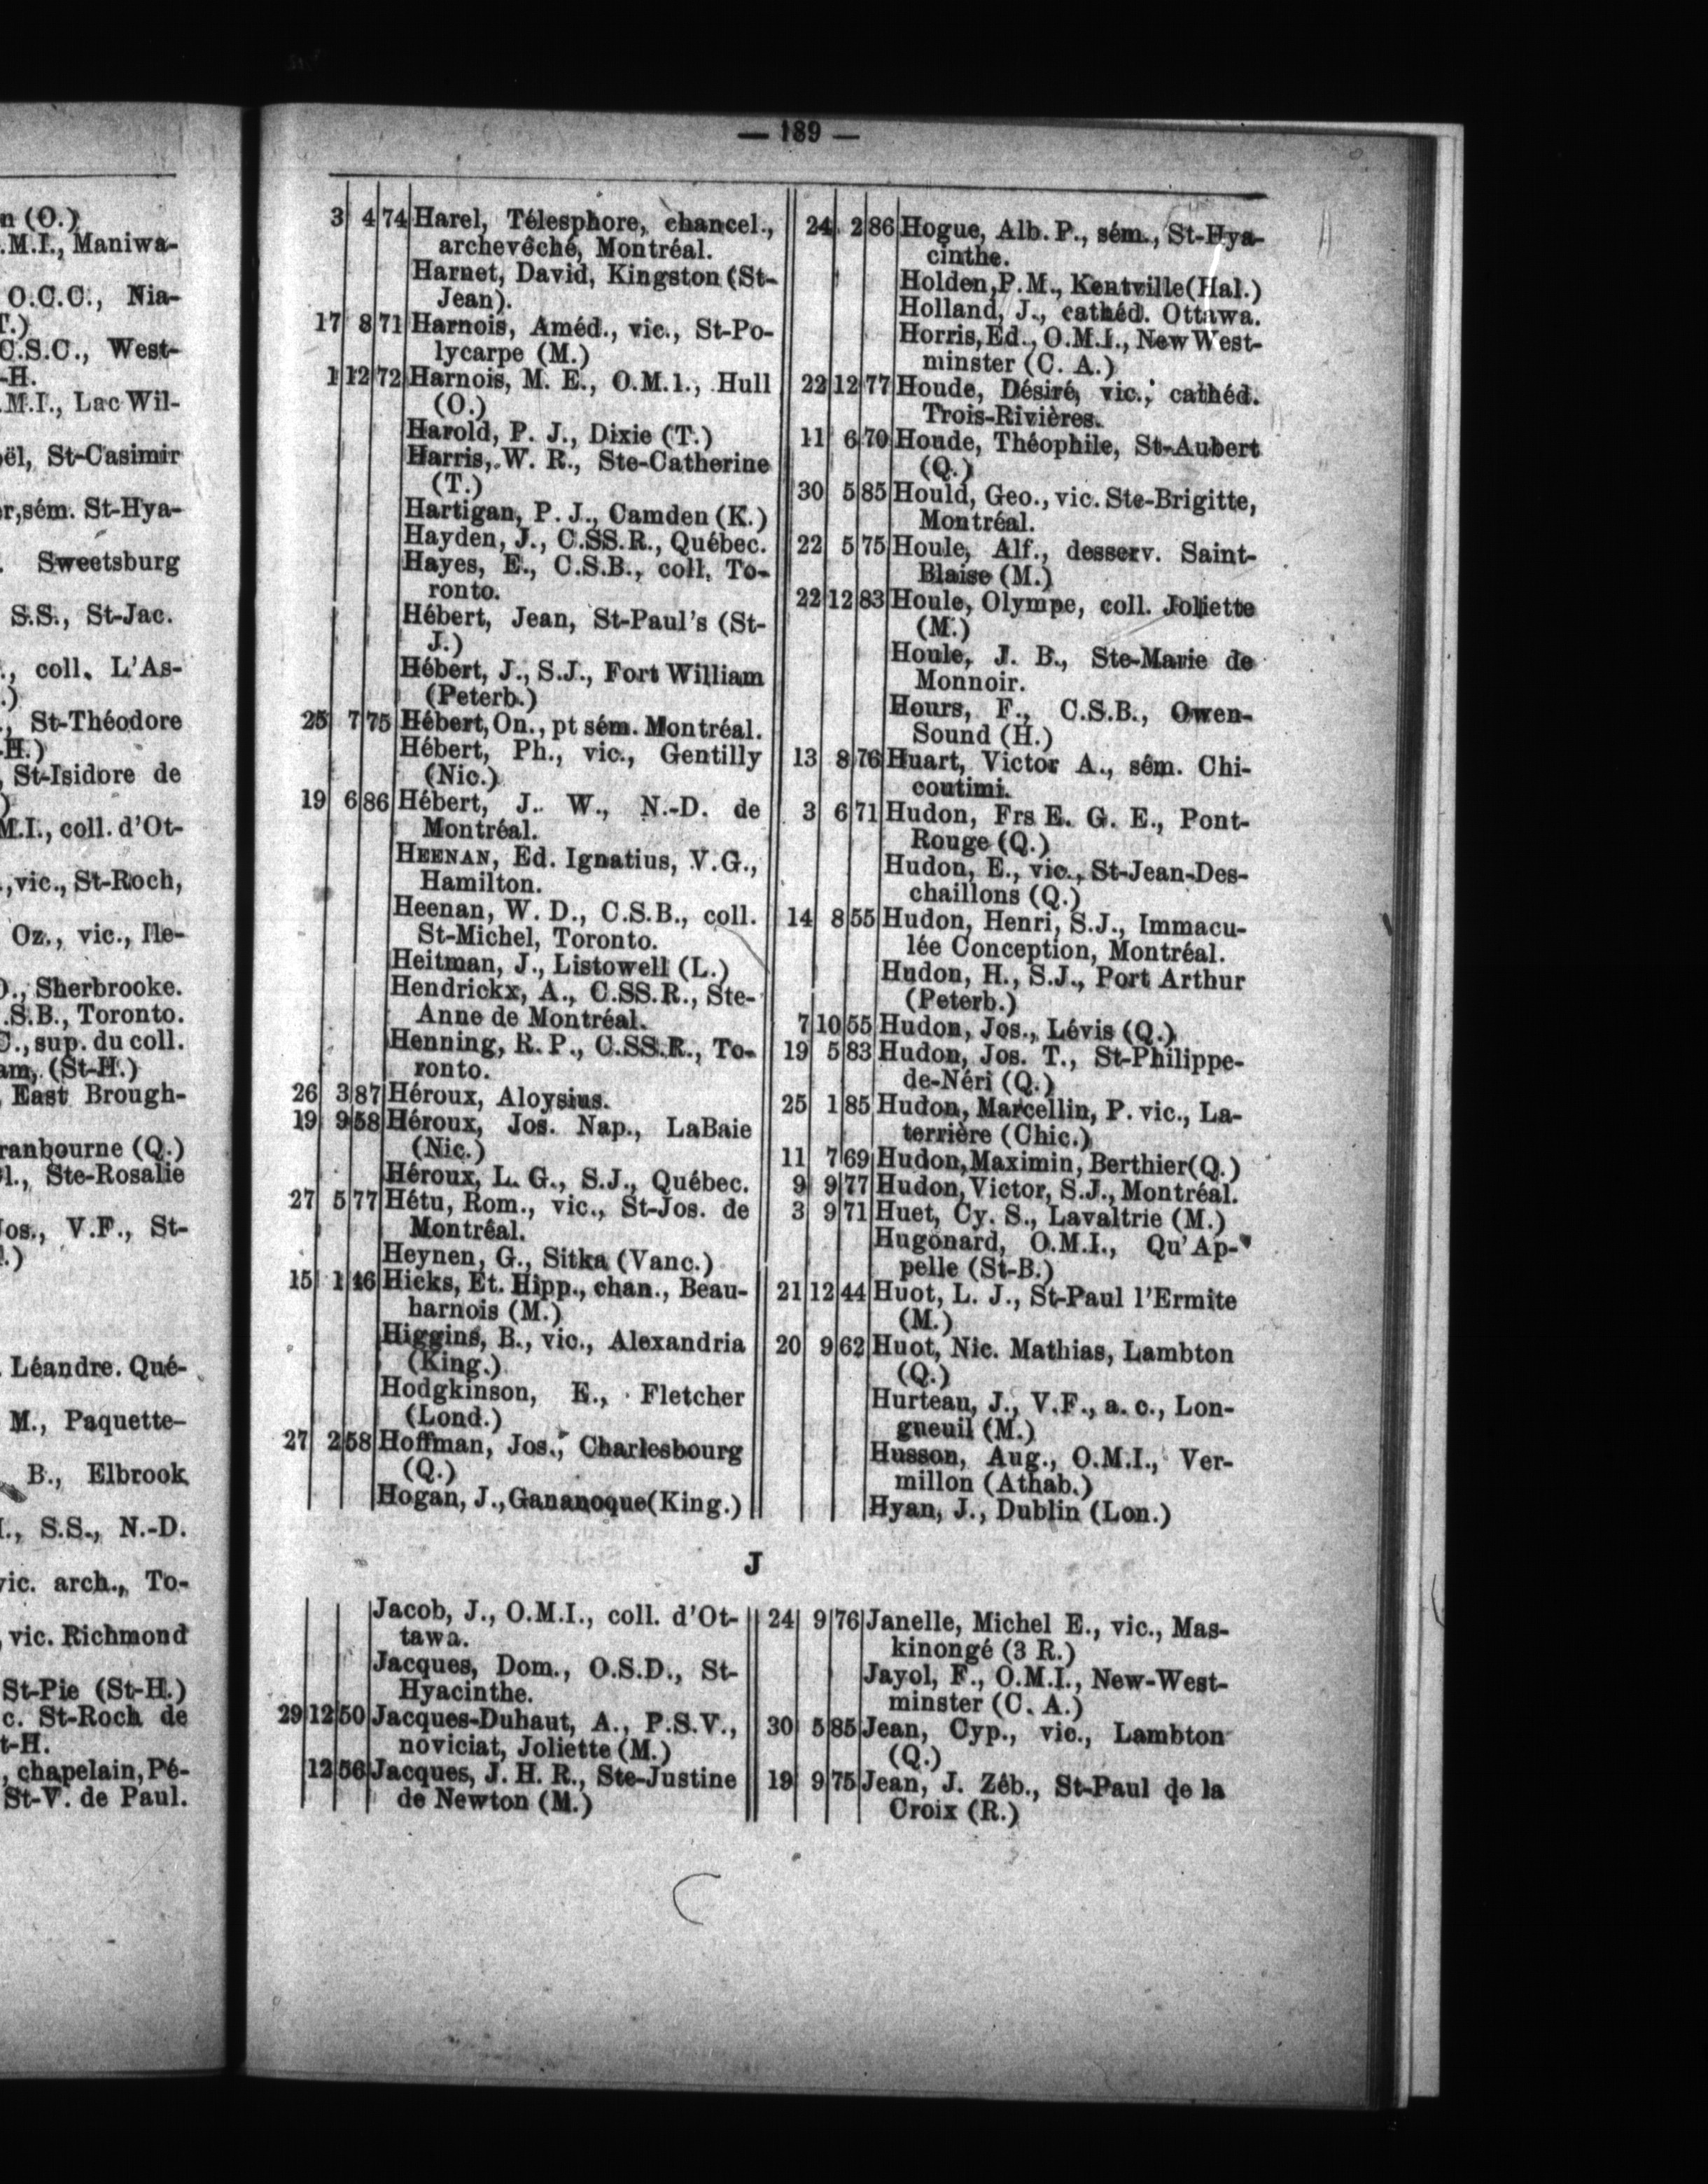 n (O.)
.M.I., Maniwa-
O.C.C., Nia-
T.)
C.S.C., West-
-H.
.M.I., Lac Wil-
oël, St-Casimir
r, sém. St-Hya-
. Sweetsburg
S.S., St-Jac.
., coll. L'As-
.)
., St-Théodore
-H.)
, St-Isidore de
)
M.I., coll. d'Ot-
., vic., St-Roch,
Oz., vic., Ile-
O., Sherbrooke.
.S.B., Toronto.
C., sup. du coll.
am, (St-H.)
, East Brough-
ranbourne (Q.)
l., Ste-Rosalie
Jos., V.F., St-
.)
. Léandre. Qué-
M., Paquette-
B., Elbrook
I., S.S., N.-D.
vic. arch., To-
, vic. Richmond
St-Pie (St-H.)
c. St-Roch de
t-H.
., chapelain, Pé-
St-V. de Paul.
— 189 —
3 4 74 Harel, Télesphore, chancel.,
archevêché, Montréal.
Harnet, David, Kingston (St-
Jean).
17 8 71 Harnois, Améd., vic., St-Po-
lycarpe (M.)
1 12 72 Harnois, M. E., O.M.1., Hull
(O.)
Harold, P. J., Dixie (T.)
Harris, W. R., Ste-Catherine
(T.)
Hartigan, P. J., Camden (K.)
Hayden, J., C.SS.R., Québec.
Hayes, E., C.S.B., coll. To-
ronto.
Hébert, Jean, St-Paul's (St-
J.)
Hébert, J., S.J., Fort William
(Peterb.)
25 7 75 Hébert, On., pt sém. Montréal.
Hébert, Ph., vic., Gentilly
(Nic.)
19 6 86 Hébert, J. W., N.-D. de
Montréal.
HEENAN, Ed. Ignatius, V.G.,
Hamilton.
Heenan, W. D., C.S.B., coll.
St-Michel, Toronto.
Heitman, J., Listowell (L.)
Hendrickx, A., C.SS.R., Ste-
Anne de Montréal.
Henning, R. P., C.SS.R., To-
ronto.
26 3 87 Héroux, Aloysius.
19 9 58 Héroux, Jos. Nap., LaBaie
(Nic.)
Héroux, L. G., S.J., Québec.
27 5 77 Hétu, Rom., vic., St-Jos. de
Montréal.
Heynen, G., Sitka (Vanc.)
15 1 46 Hicks, Et. Hipp., chan., Beau-
harnois (M.)
Higgins, B., vic., Alexandria
(King.)
Hodgkinson, E., Fletcher
(Lond.)
27 2 58 Hoffman, Jos., Charlesbourg
(Q.)
Hogan, J., Gananoque (King.)
24 2 86 Hogue, Alb. P., sém., St-Hya-
cinthe.
Holden, P. M., Kentville (Hal.)
Holland, J., cathéd. Ottawa.
Horris, Ed., O.M.I., New West-
minster (C. A.)
22 12 77 Houde, Désiré, vic., cathéd.
Trois-Rivières.
11 6 70 Houde, Théophile, St-Aubert
(Q.)
30 5 85 Hould, Geo., vic. Ste-Brigitte,
Montréal.
22 5 75 Houle, Alf., desserv. Saint-
Blaise (M.)
22 12 83 Houle, Olympe, coll. Joliette
(M.)
Houle, J. B., Ste-Marie de
Monnoir.
Hours, F., C.S.B., Owen-
Sound (H.)
13 8 76 Huart, Victor A., sém. Chi-
coutimi.
3 6 71 Hudon, Frs E. G. E., Pont-
Rouge (Q.)
Hudon, E., vic., St-Jean-Des-
chaillons (Q.)
14 8 55 Hudon, Henri, S.J., Immacu-
lée Conception, Montréal.
Hudon, H., S.J., Port Arthur
(Peterb.)
7 10 55 Hudon, Jos., Lévis (Q.)
19 5 83 Hudon, Jos. T., St-Philippe-
de-Néri (Q.)
25 1 85 Hudon, Marcellin, P. vic., La-
terrière (Chic.)
11 7 69 Hudon, Maximin, Berthier (Q.)
9 9 77 Hudon, Victor, S.J., Montréal.
3 9 71 Huet, Cy. S., Lavaltrie (M.)
Hugonard, O.M.I., Qu'Ap-
pelle (St-B.)
21 12 44 Huot, L. J., St-Paul l'Ermite
(M.)
20 9 62 Huot, Nic. Mathias, Lambton
(Q.)
Hurteau, J., V.F., a. c., Lon-
gueuil (M.)
Husson, Aug., O.M.I., Ver-
millon (Athab.)
Hyan, J., Dublin (Lon.)
J
Jacob, J., O.M.I., coll. d'Ot-
tawa.
Jacques, Dom., O.S.D., St-
Hyacinthe.
29 12 50 Jacques-Duhaut, A., P.S.V.,
noviciat, Joliette (M.)
12 56 Jacques, J. H. R., Ste-Justine
de Newton (M.)
24 9 76 Janelle, Michel E., vic., Mas-
kinongé (3 R.)
Jayol, F., O.M.I., New-West-
minster (C. A.)
30 5 85 Jean, Cyp., vic., Lambton
(Q.)
19 9 75 Jean, J. Zéb., St-Paul de la
Croix (R.)